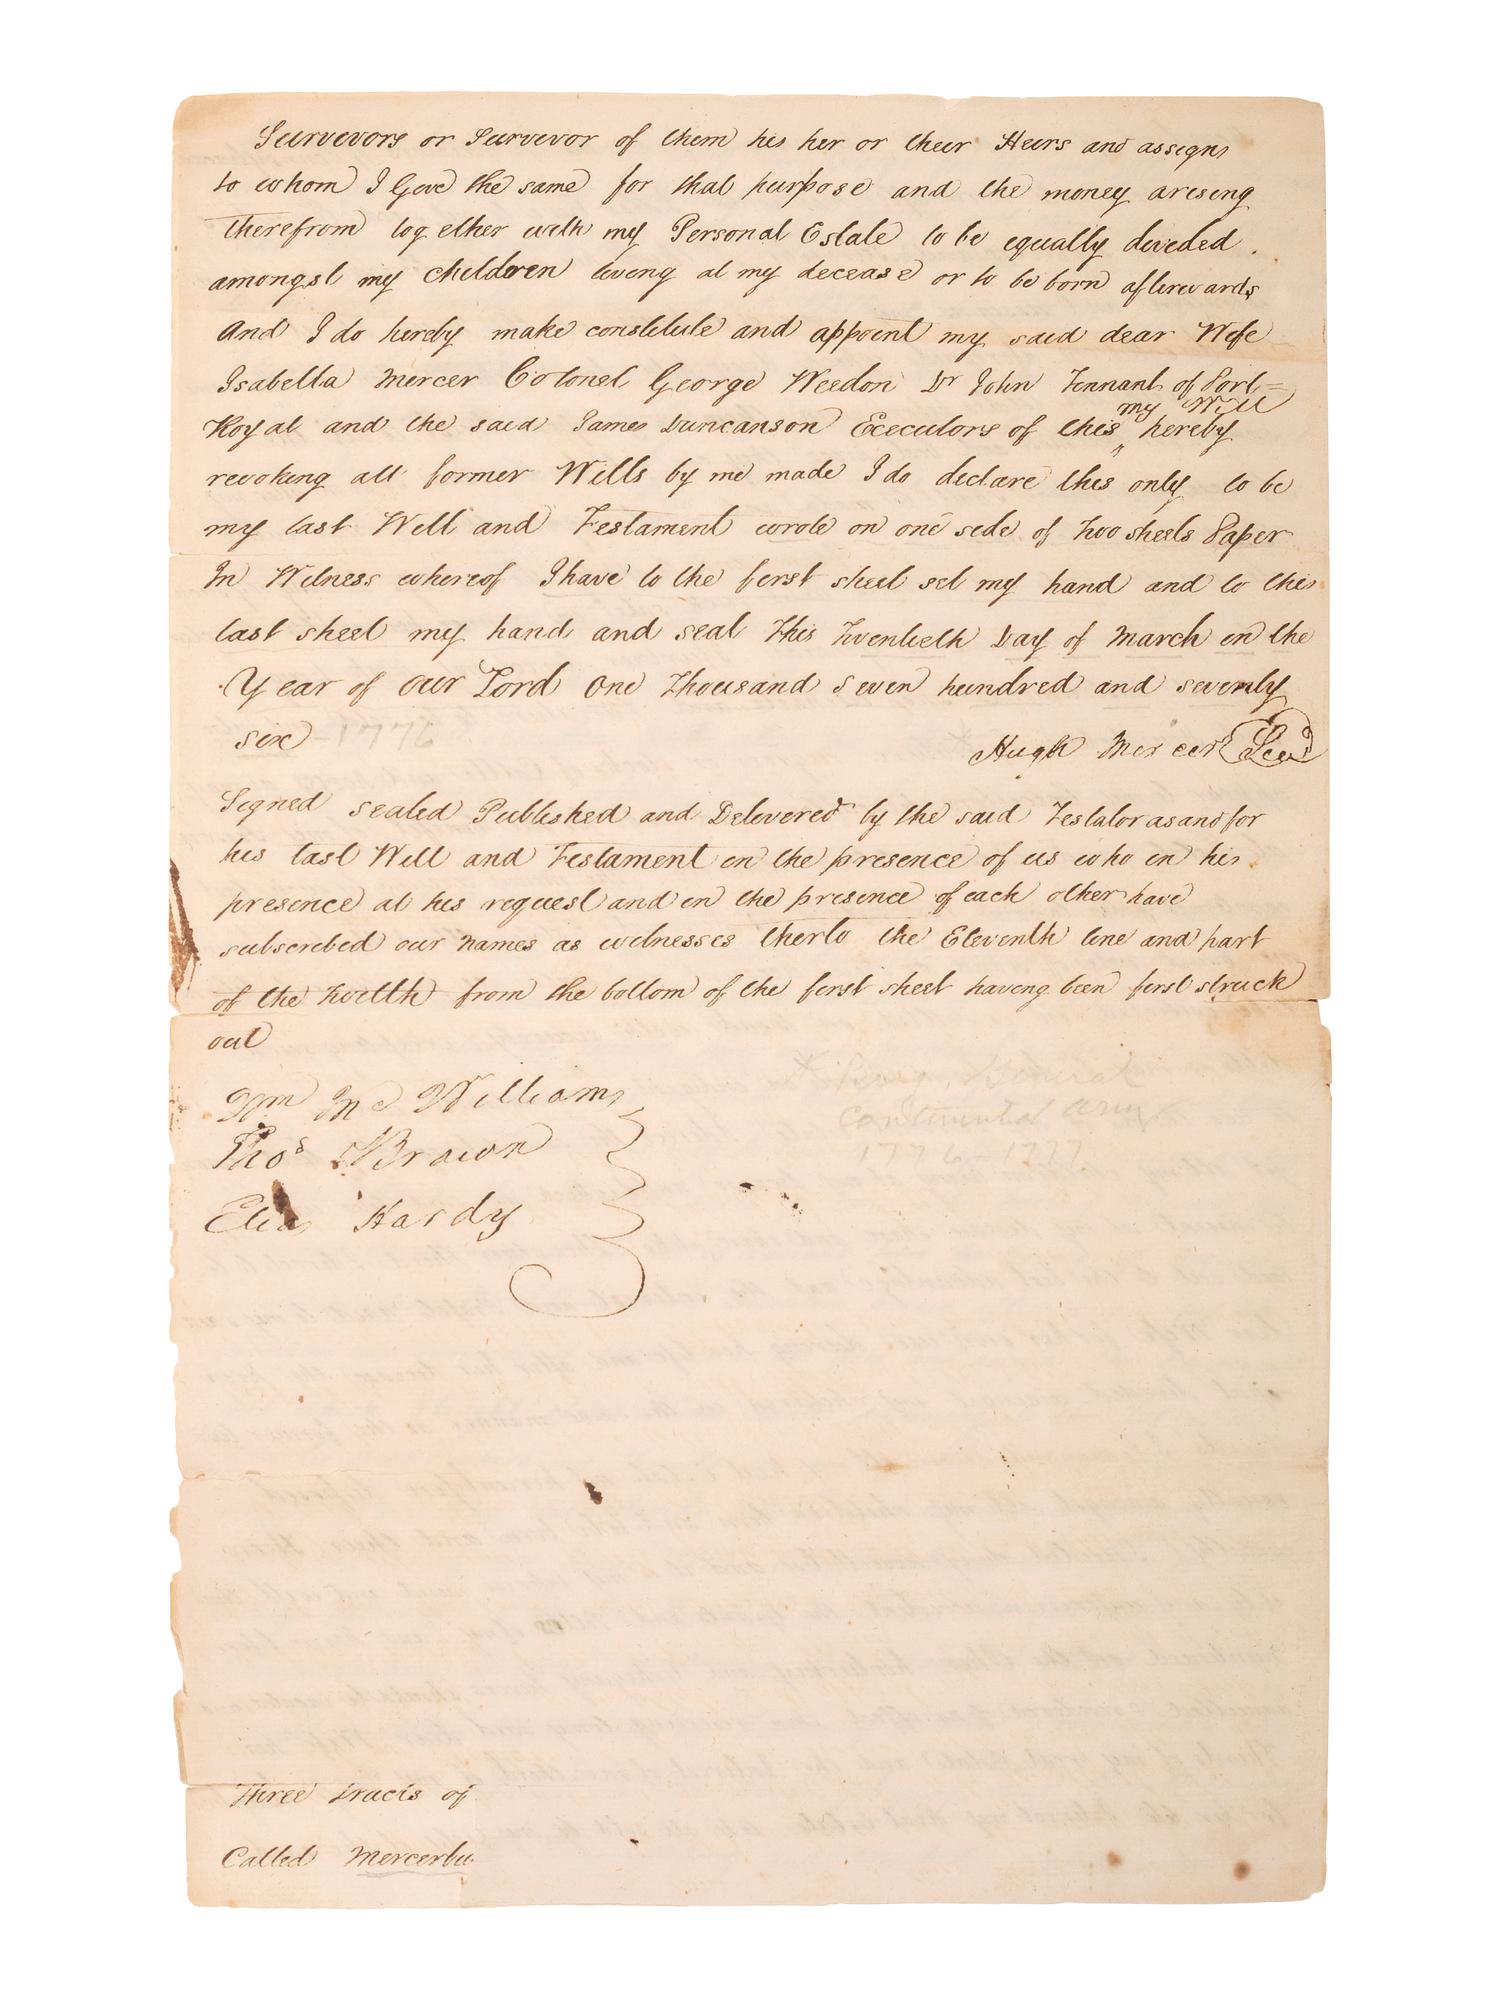 Survivors or Survivor of them his her or their Heirs and assigns
to whom I Give the same for that purpose and the money arising
therefrom together with my Personal Estate to be equally divided
amongst my children living at my decease or to be born afterwards
And I do hereby make constitute and appoint my said dear Wife
Isabella Mercer Colonel George Weedon Dr John Tennant of Port=
my Will
Royal and the said James Duncanson Executors of this ‸ hereby
revoking all former Wills by me made I do declare this only to be
my last Will and Testament wrote on one side of Two sheets Paper
In Witness whereof I have to the first sheet set my hand and to this
last sheet my hand and seal This Twentieth Day of March in the
Year of our Lord One Thousand Seven hundred and seventy
six - 1776
Hugh Mercer
Signed sealed Published and Delivered by the said Testator as and for
his last Will and Testament in the presence of us who in his
presence at his request and in the presence of each other have
subscribed our names as witnesses therto the Eleventh line and part
of the twelth from the bottom of the first sheet having been first struck
out
Wm Mc Williams
* Brig. General
Continental Army
1776-1777
Thos Brown
Elias Hardy
Three tracts of
Called Mercerbu